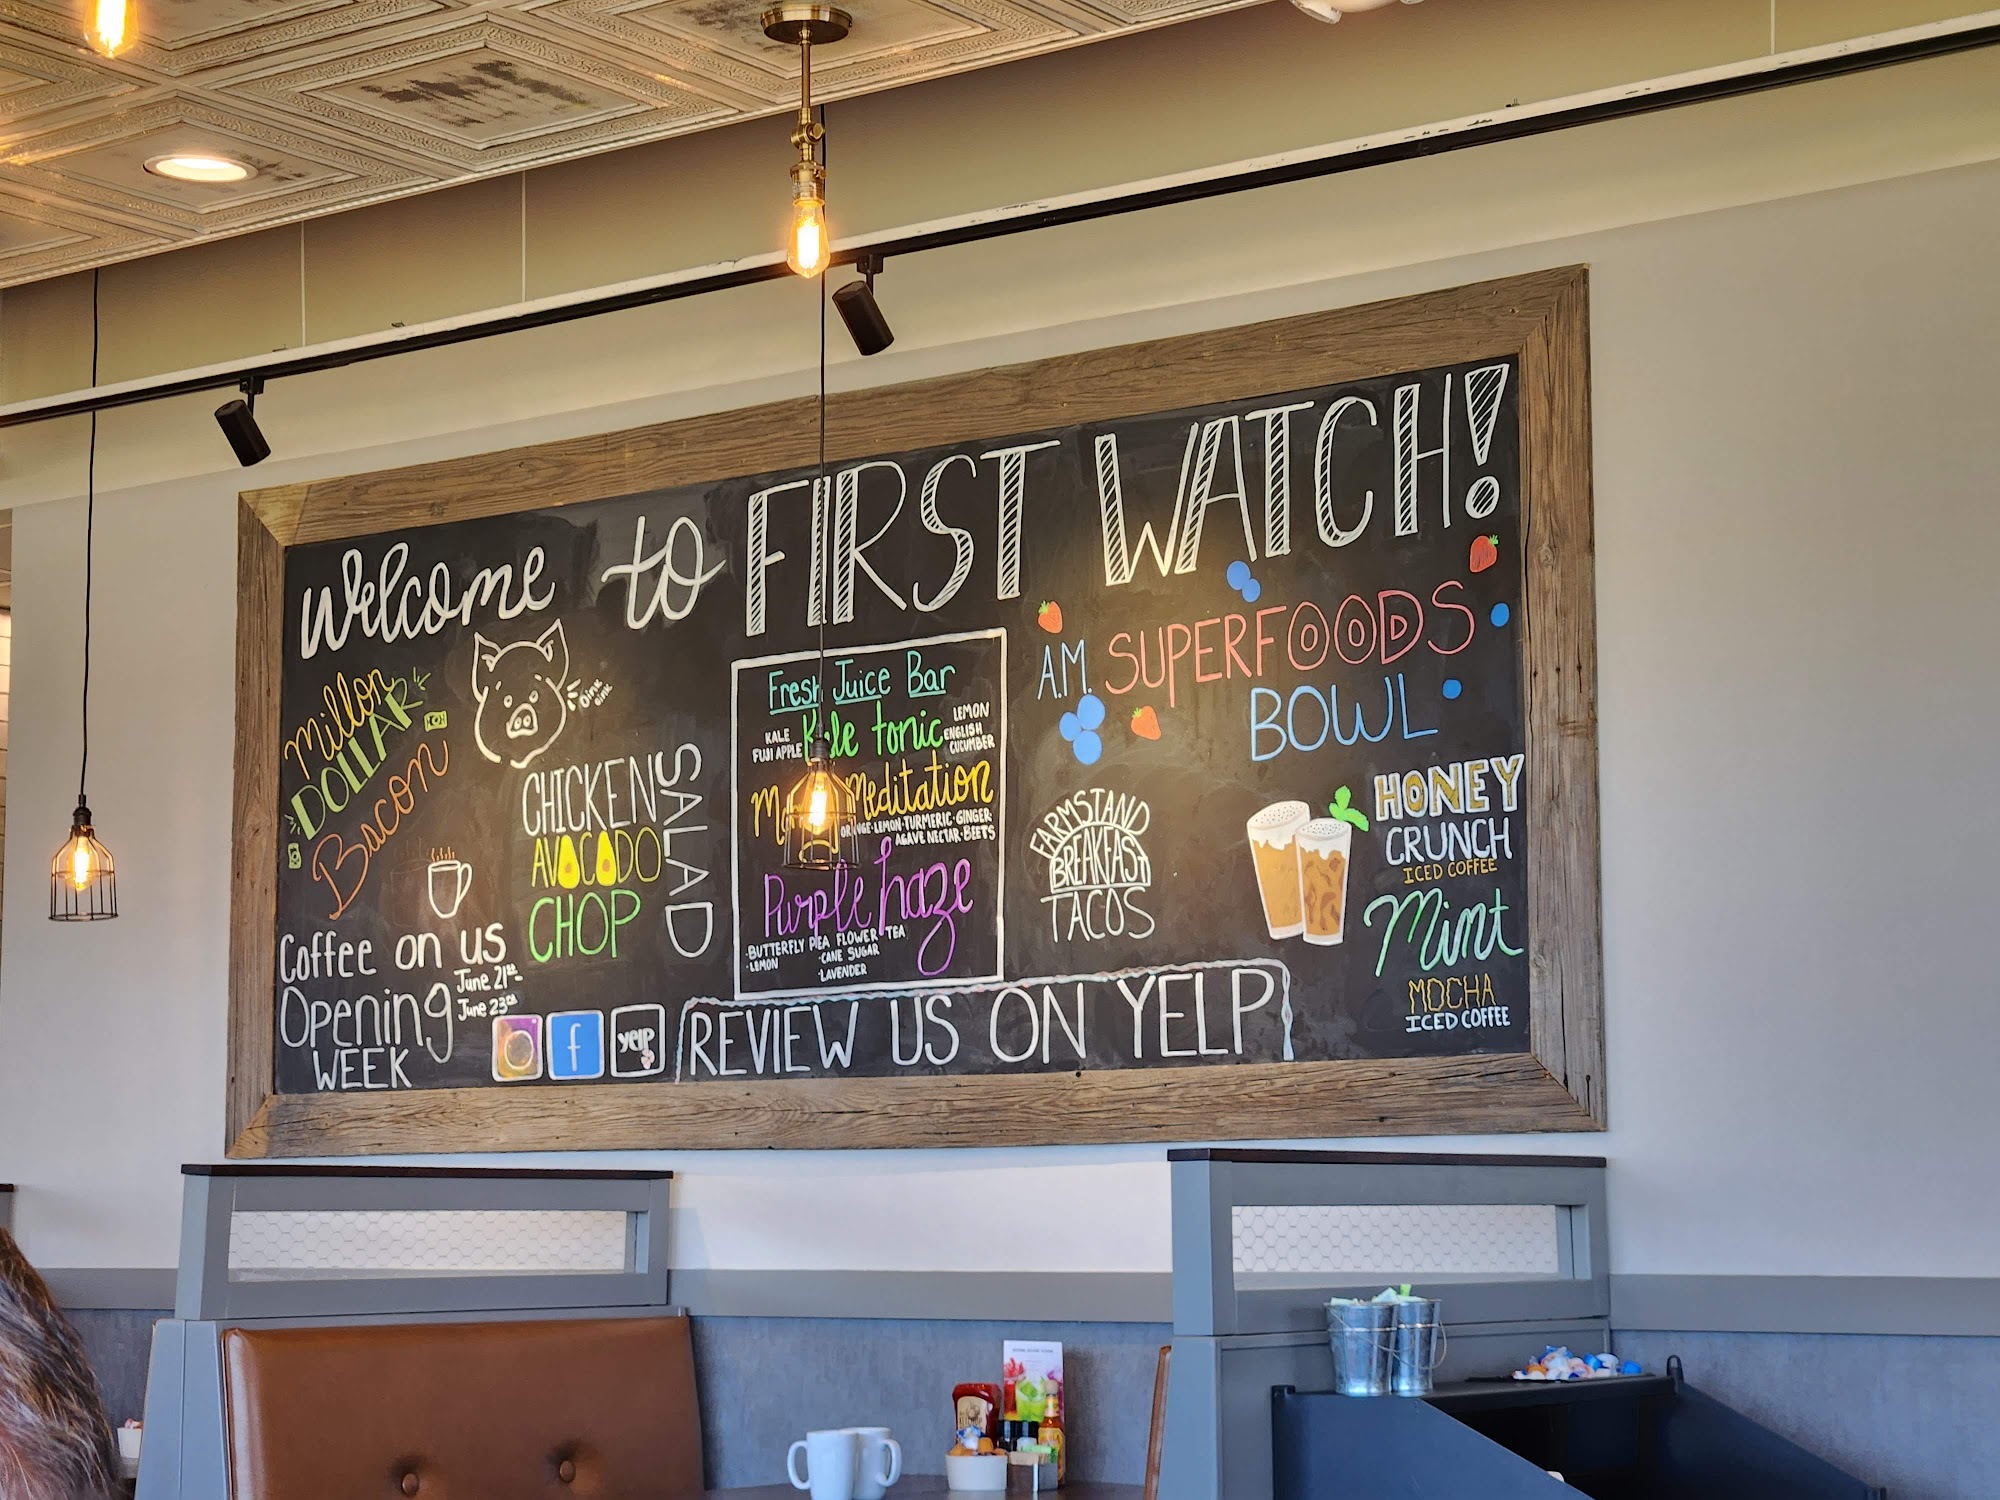 Welcome to FIRST WATCH!
Millon
DOLLAR
Bacon
Oink
oink
CHICKEN
AVOCADO
CHOP
SALAD
Coffee on us
June 21st-
June 23rd
Opening
WEEK
yelp
Fresh Juice Bar
Kale tonic
KALE
FUJI APPLE
LEMON
ENGLISH
CUCUMBER
Meditation
ORANGE·LEMON·TURMERIC·GINGER·
AGAVE NECTAR·BEETS
Purple haze
·BUTTERFLY PEA FLOWER TEA
·LEMON
·CANE SUGAR
·LAVENDER
REVIEW US ON YELP
A.M. SUPERFOODS
BOWL
FARMSTAND
BREAKFAST
TACOS
HONEY
CRUNCH
ICED COFFEE
Mint
MOCHA
ICED COFFEE